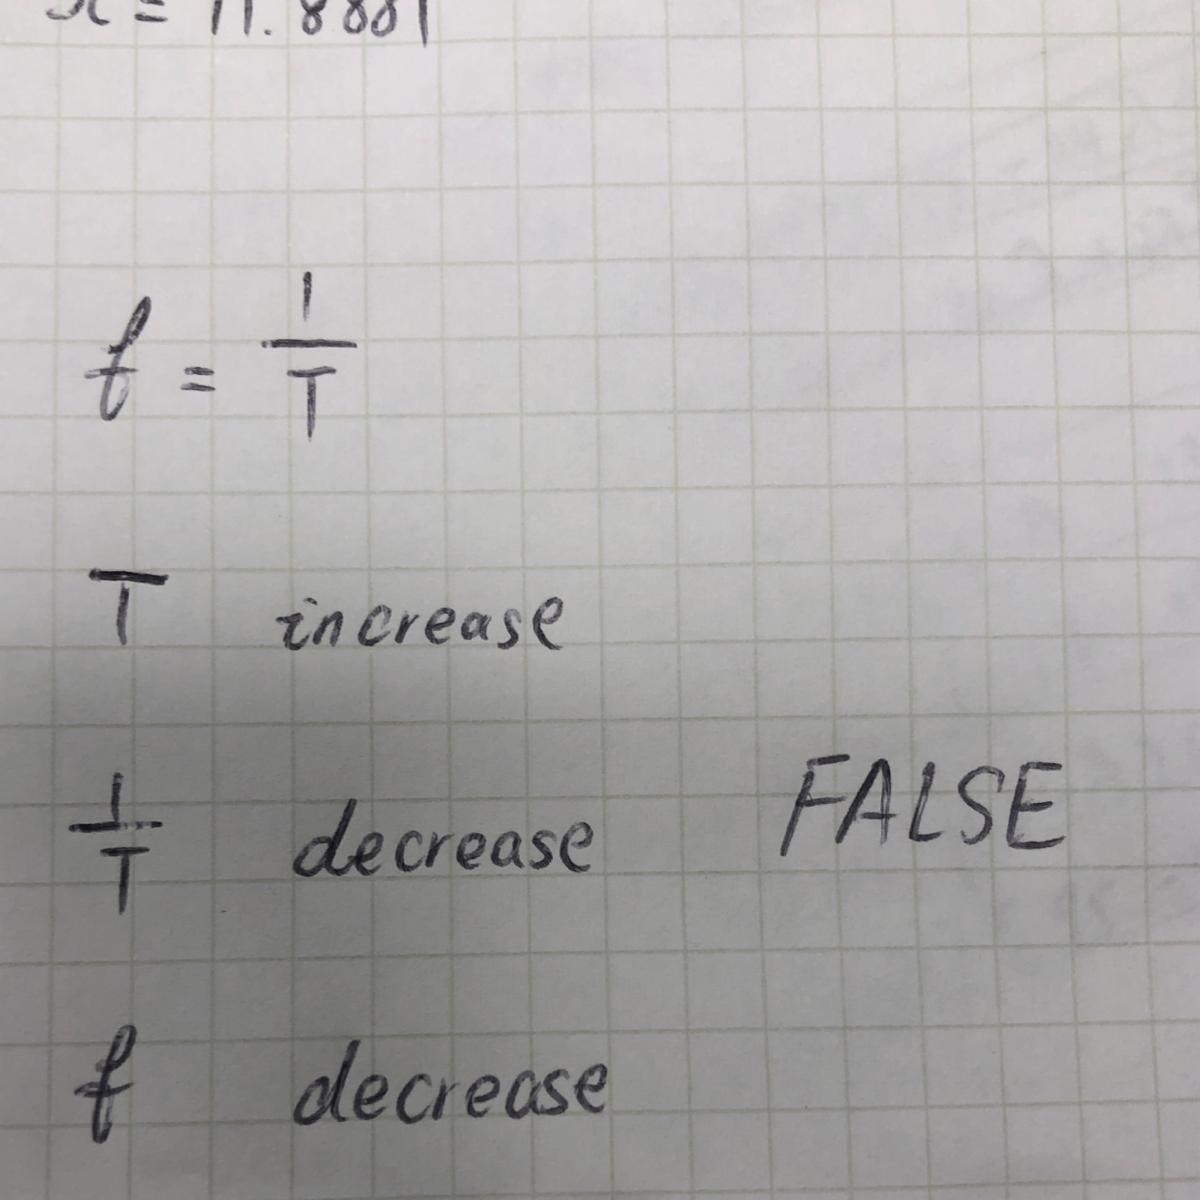 f = 1/T
T increase
1/T decrease FALSE
f decrease